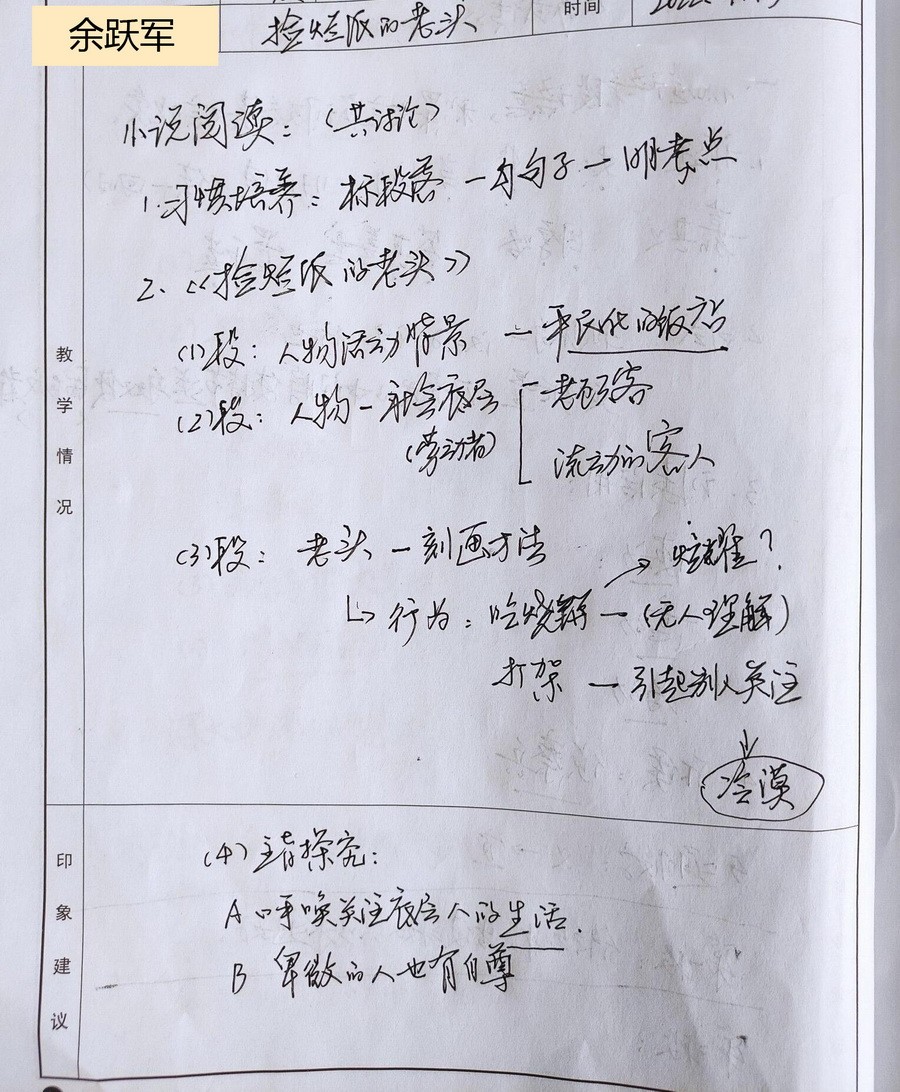 余跃军
捡烂纸的老头
时间
小说阅读：（共讨论）
1.习惯培养：标段落一勾句子一明考点
2.《捡烂纸的老头》
(1)段：人物活动背景一平民化的饭店
(2)段：人物一社会底层
（劳动者）
老顾客
流动的客人
(3)段：老头一刻画方法
炫耀？
行为：吃烧饼一（无人理解）
打架一引起别人关注
冷漠
教学情况
(4)主旨探究：
A 呼唤关注底层人的生活.
B 卑微的人也有自尊
印象建议